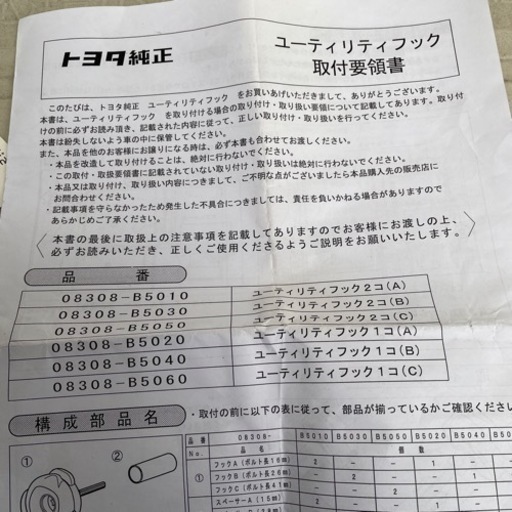 トヨタ純正
ユーティリティフック
取付要領書
このたびは、トヨタ純正 ユーティリティフック をお買いあげいただきまして、ありがとうございます。
本書は、ユーティリティフック を取り付ける場合の取り付け・取り扱い要領について記載してあります。取り付
けの前に必ずお読み頂き、記載された内容に従って、正しく取り付け・取り扱いを行ってください。
本書は紛失しないよう車の中に保管してください。
また、本品を他のお客様にお譲りになる時は、必ず本書も合わせてお渡しください。
・本品を改造して取り付けることは、絶対に行わないでください。
・この取付・取扱要領書に記載されていない取り付け・取り扱いは絶対に行わないでください。
・本品又は取り付け、取り扱い内容につきまして、ご不明な点がございましたら本品購入先の販売店に
お問合わせください。
・記載事項を守らなかったため発生した不具合につきましては、責任を負いかねる場合がありますので
あらかじめご了承ください。
本書の最後に取扱上の注意事項を記載してありますのでお客様にお渡しの上、
必ずお読みいただき、正しくご使用くださるようご説明をお願いいたします。
品 番
08308-B5010 ユーティリティフック2コ(A)
08308-B5030 ユーティリティフック2コ(B)
08308-B5050 ユーティリティフック2コ(C)
08308-B5020 ユーティリティフック1コ(A)
08308-B5040 ユーティリティフック1コ(B)
08308-B5060 ユーティリティフック1コ(C)
構成部品名
・取付の前に以下の表に従って、部品が揃っているかご確認ください
品番 08308- B5010 B5030 B5050 B5020 B5040
No. 個数
① フックA(ボルト長16m) 2 - - 1 -
フックB(ボルト長26m) - 2 - - 1
フックC(ボルト長41m) - - 2 - -
スペーサーA(15m) 2 - - 1
① ②